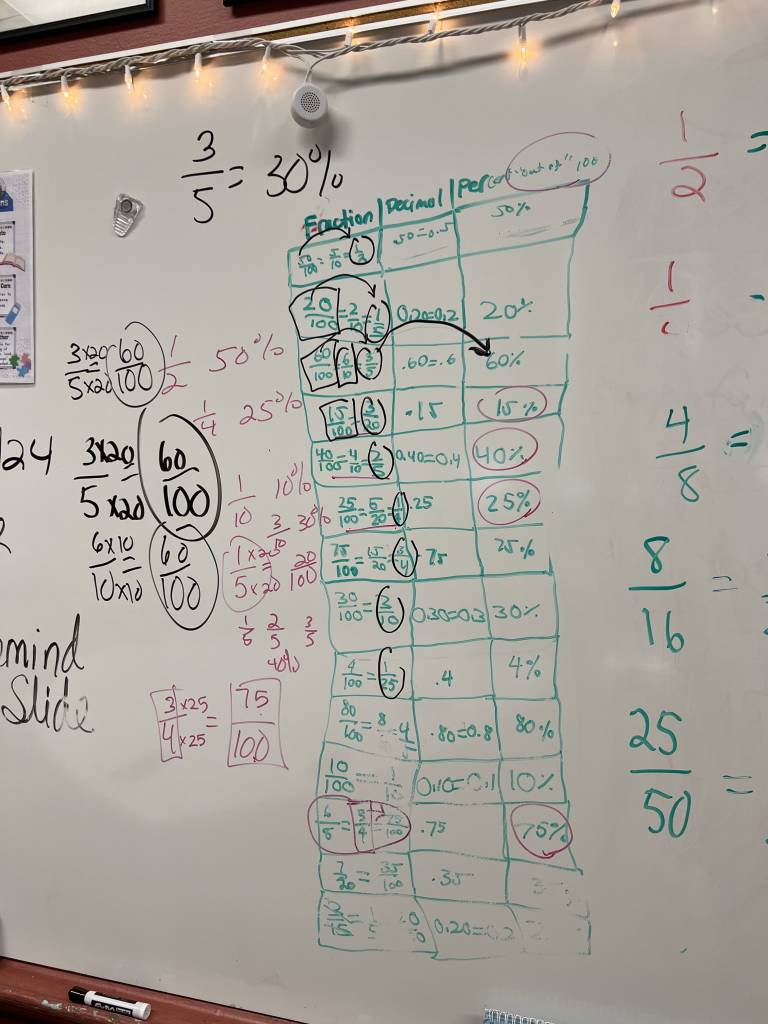 3/5 = 30%
Fraction | Decimal | Percent "out of" 100
50/100 = 5/10 = 1/2 | .50=0.5 | 50%
20/100 = 2/10 = 1/5 | 0.20=0.2 | 20%
60/100 = 6/10 = 3/5 | .60=.6 | 60%
15/100 = 3/20 | .15 | 15%
40/100 = 4/10 = 2/5 | 0.40=0.4 | 40%
25/100 = 5/20 = 1/4 | .25 | 25%
75/100 = 15/20 = 3/4 | 75
30/100 = 3/10 | 0.30=0.3 | 30%
4/100 = 1/25 | .4 | 4%
80/100 = 8 | .80=0.8 | 80%
10/100 = 1/10 | 0.10=0.1 | 10%
6/8 = 3/4 = 75/100 | .75 | 75%
7/20 = 35/100 | .35
0.20=0.2
3×20/5×20 = 60/100
1/2 50%
1/4 25%
24
3×20/5×20 = 60/100
1/10 10%
3/10 30%
6×10/10×10 = 60/100
1×20/5×20 = 20/100
1/5 2/5 3/5
40%
mind
Slide
3×25/4×25 = 75/100
1/2 =
1/
4/8 =
8/16 =
25/50 =